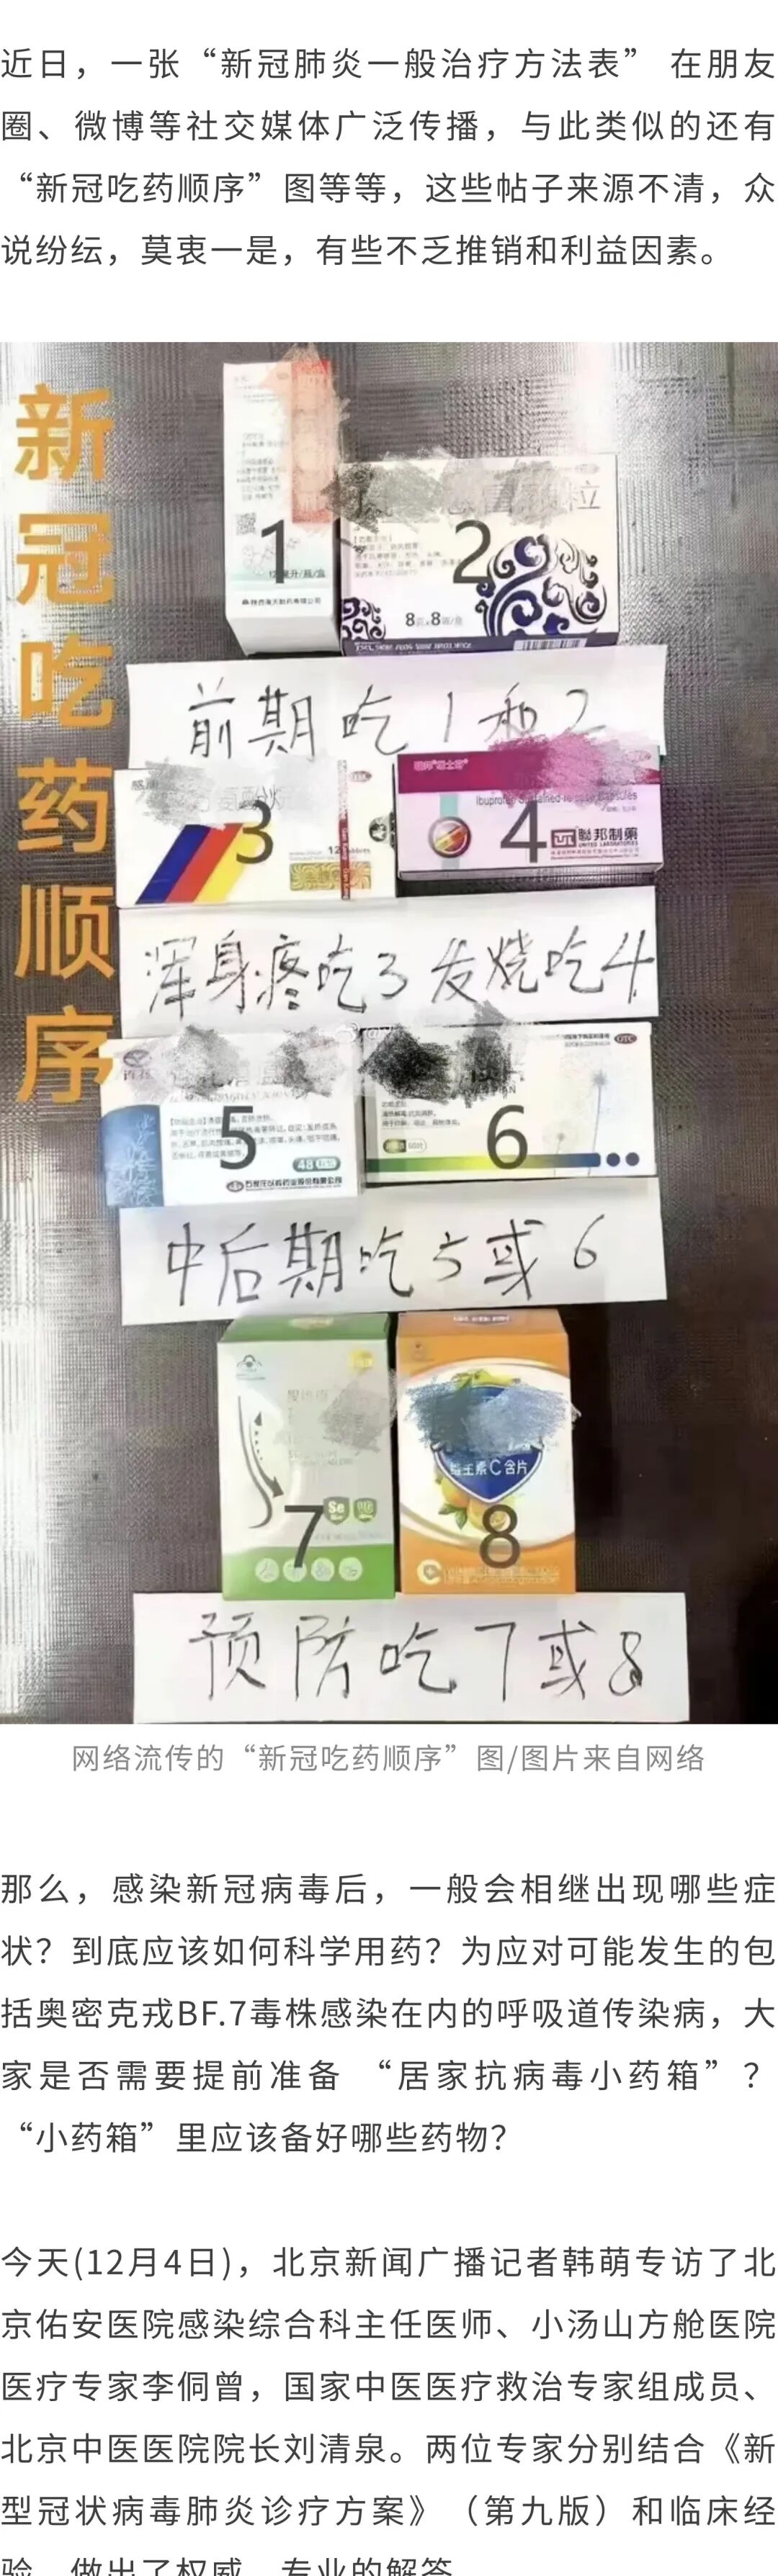 近日，一张“新冠肺炎一般治疗方法表” 在朋友
圈、微博等社交媒体广泛传播，与此类似的还有
“新冠吃药顺序”图等等，这些帖子来源不清，众
说纷纭，莫衷一是，有些不乏推销和利益因素。
新冠吃药顺序
1
2
粒
8克×8袋/盒
前期吃1和2
3
4
感康
12
Ibuprofen Sustained-release Capsules
聯邦制藥
UNITED LABORATORIES
浑身疼吃3发烧吃4
5
6
OTC
48
中后期吃5或6
7
8
Se
维生素C含片
预防吃7或8
网络流传的“新冠吃药顺序”图/图片来自网络
那么，感染新冠病毒后，一般会相继出现哪些症
状？到底应该如何科学用药？为应对可能发生的包
括奥密克戎BF.7毒株感染在内的呼吸道传染病，大
家是否需要提前准备 “居家抗病毒小药箱”？
“小药箱”里应该备好哪些药物？
今天(12月4日)，北京新闻广播记者韩萌专访了北
京佑安医院感染综合科主任医师、小汤山方舱医院
医疗专家李侗曾，国家中医医疗救治专家组成员、
北京中医医院院长刘清泉。两位专家分别结合《新
型冠状病毒肺炎诊疗方案》（第九版）和临床经
验，做出了权威、专业的解答。